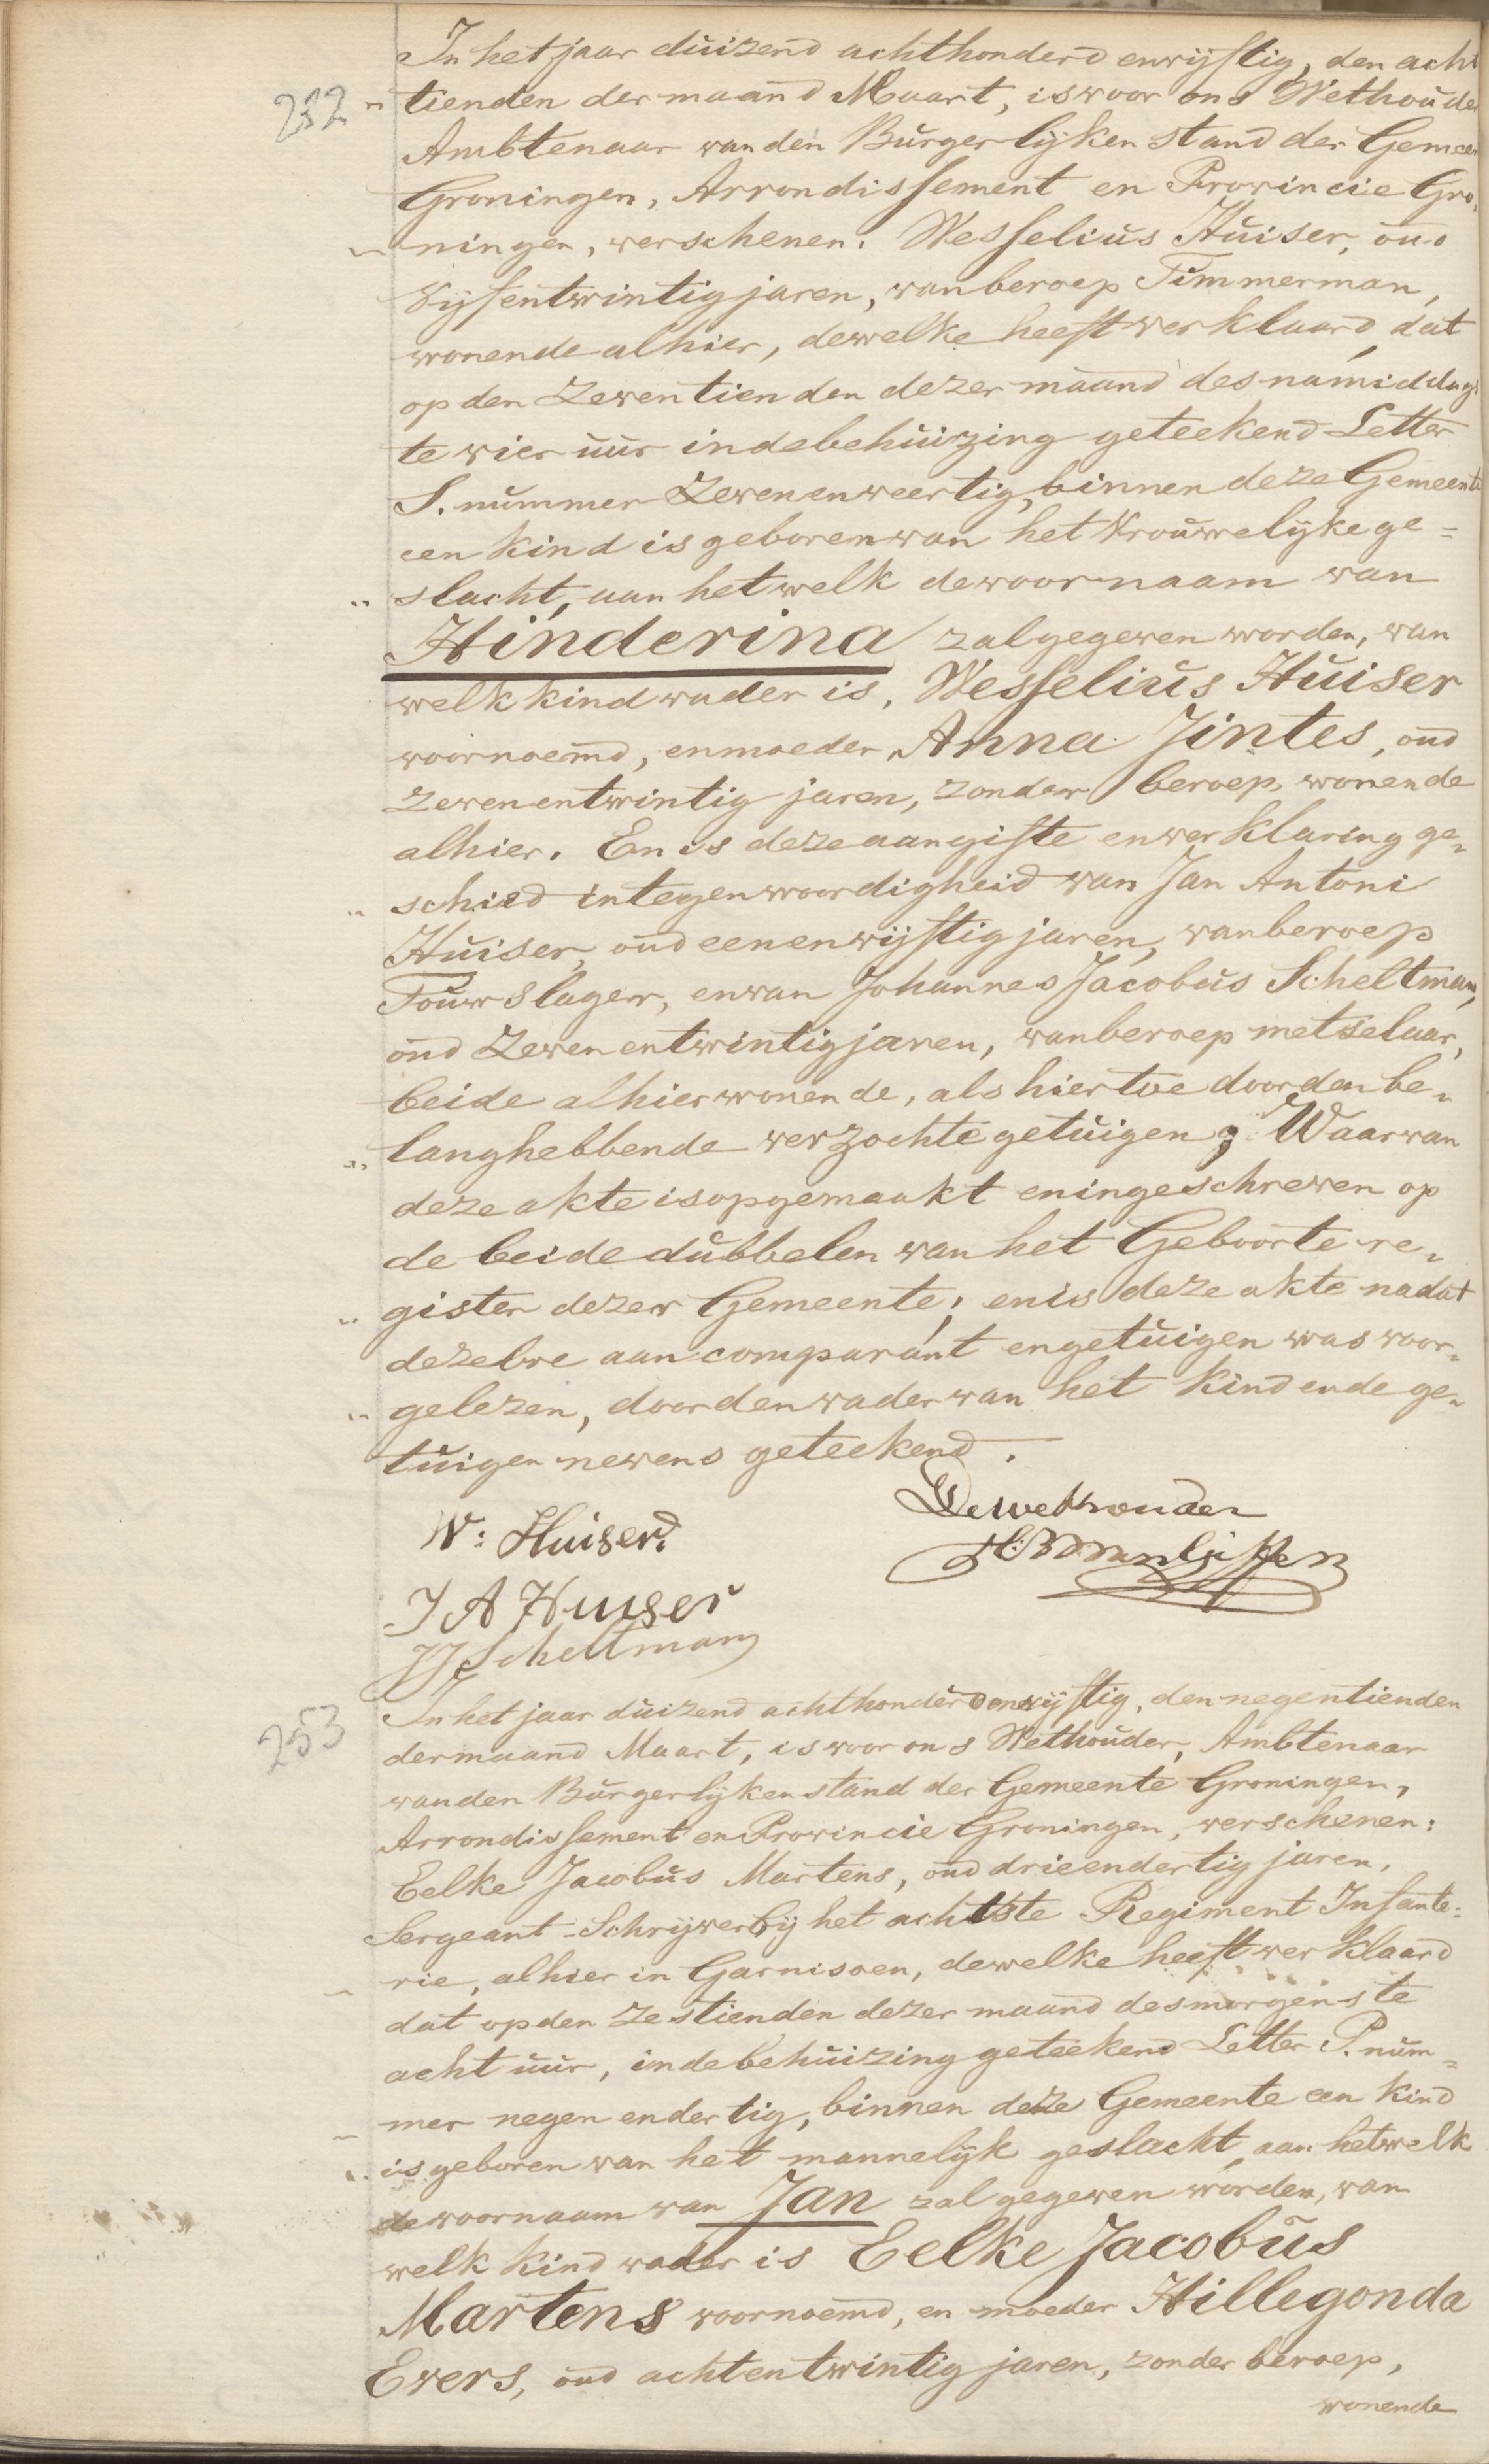 In het jaar duizend achthonderd en vijftig, den acht
232
tienden der maand Maart, is voor ons Wethouder
Ambtenaar van den Burgerlijken stand der Gemeen
Groningen, Arrondissement en Provincie Gro„
ningen, verschenen: Wesselius Huiser, oud
vijfentwintig jaren, van beroep Timmerman,
wonende alhier, dewelke heeft verklaard, dat
op den Zeventienden dezer maand des namiddags
te vier uur in de behuizing geteekend Letter
S. nummer Zevenenveertig, binnen deze Gemeente
een kind is geboren van het Vrouwelijke ge=
slacht, aan hetwelk de voornaam van
Hinderina zal gegeven worden, van
welk kind vader is, Wesselius Huiser
voornoemd, en moeder, Anna Jintes, oud
zevenentwintig jaren, zonder beroep, wonende
alhier. En is deze aangifte en verklaring ge„
schied in tegenwoordigheid van Jan Antoni
Huiser, oud eenenvijftig jaren, van beroep
Touwslager, en van Johannes Jacobus Scheltman,
oud Zevenentwintig jaren, van beroep metselaar,
beide alhier wonende, als hiertoe door den be„
langhebbende verzochte getuigen; Waarvan
deze akte is opgemaakt en ingeschreven op
de beide dubbelen van het Geboorte re„
gister dezer Gemeente; en is deze akte nadat
dezelve aan comparant en getuigen was voor„
gelezen, door den vader van het kind en de ge„
tuigen nevens geteekend.
De wethouder
W: Huiser.
J A Huiser
JJ Scheltman
In het jaar duizend achthonderd en vijftig, den negentienden
253
der maand Maart, is voor ons Wethouder, Ambtenaar
van den Burgerlijken stand der Gemeente Groningen,
Arrondissement en Provincie Groningen, verschenen:
Eelke Jacobus Martens, oud drieendertig jaren,
Sergeant-Schrijver bij het achtste Regiment Infante=
rie, alhier in Garnisoen, dewelke heeft verklaard
dat op den zestienden dezer maand des morgens te
acht uur, in de behuizing geteekend Letter P. num=
mer negen en dertig, binnen deze Gemeente een kind
is geboren van het mannelijk geslacht, aan hetwelk
de voornaam van Jan zal gegeven worden, van
welk kind vader is Eelke Jacobus
Martens voornoemd, en moeder Hillegonda
Evers, oud achtentwintig jaren, zonder beroep,
wonende